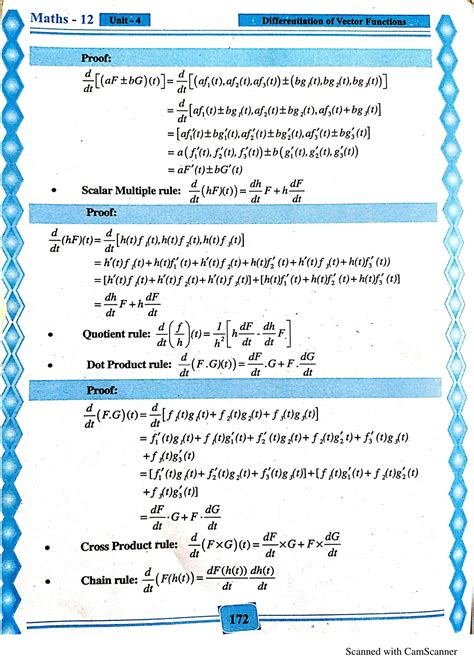 Maths - 12 Unit - 4 Differentiation of Vector Functions
Proof:
d/dt[(aF ± bG)(t)] = d/dt[(af₁(t),af₂(t),af₃(t))±(bg₁(t),bg₂(t),bg₃(t))]
= d/dt[af₁(t)±bg₁(t),af₂(t)±bg₂(t),af₃(t)+bg₃(t)]
= [af₁′(t)±bg₁′(t),af₂′(t)±bg₂′(t),af₃′(t)±bg₃′(t)]
= a(f₁′(t),f₂′(t),f₃′(t))±b(g₁′(t),g₂′(t),g₃′(t))
= aF′(t)±bG′(t)
• Scalar Multiple rule: d/dt(hF)(t)) = dh/dt F + h dF/dt
Proof:
d/dt(hF)(t) = d/dt[h(t)f₁(t),h(t)f₂(t),h(t)f₃(t)]
= h′(t)f₁(t)+h(t)f₁′(t)+h′(t)f₂(t)+h(t)f₂′(t)+h′(t)f₃(t)+h(t)f₃′(t))
= [h′(t)f₁(t)+h′(t)f₂(t)+h′(t)f₃(t)]+[h(t)f₁′(t)+h(t)f₂′(t)+h(t)f₃′(t)]
= dh/dt F + h dF/dt
• Quotient rule: d/dt(f/h)(t) = 1/h²[h dF/dt - dh/dt F]
• Dot Product rule: d/dt(F.G)(t)) = dF/dt .G + F. dG/dt
Proof:
d/dt(F.G)(t) = d/dt[f₁(t)g₁(t)+f₂(t)g₂(t)+f₃(t)g₃(t)]
= f₁′(t)g₁(t)+f₁(t)g₁′(t)+f₂′(t)g₂(t)+f₂(t)g₂′t)+f₃′(t)g₃(t)
+f₃(t)g₃′(t)
= [f₁′(t)g₁(t)+f₂′(t)g₂(t)+f₃′(t)g₃(t)]+[f₁(t)g₁′(t)+f₂(t)g₂′(t)
+f₃(t)g₃′(t)]
= dF/dt · G + F · dG/dt
• Cross Product rule: d/dt(F×G)(t) = dF/dt ×G+F× dG/dt
• Chain rule: d/dt(F(h(t)) = dF(h(t))/dt dh(t)/dt
172
Scanned with CamScanner